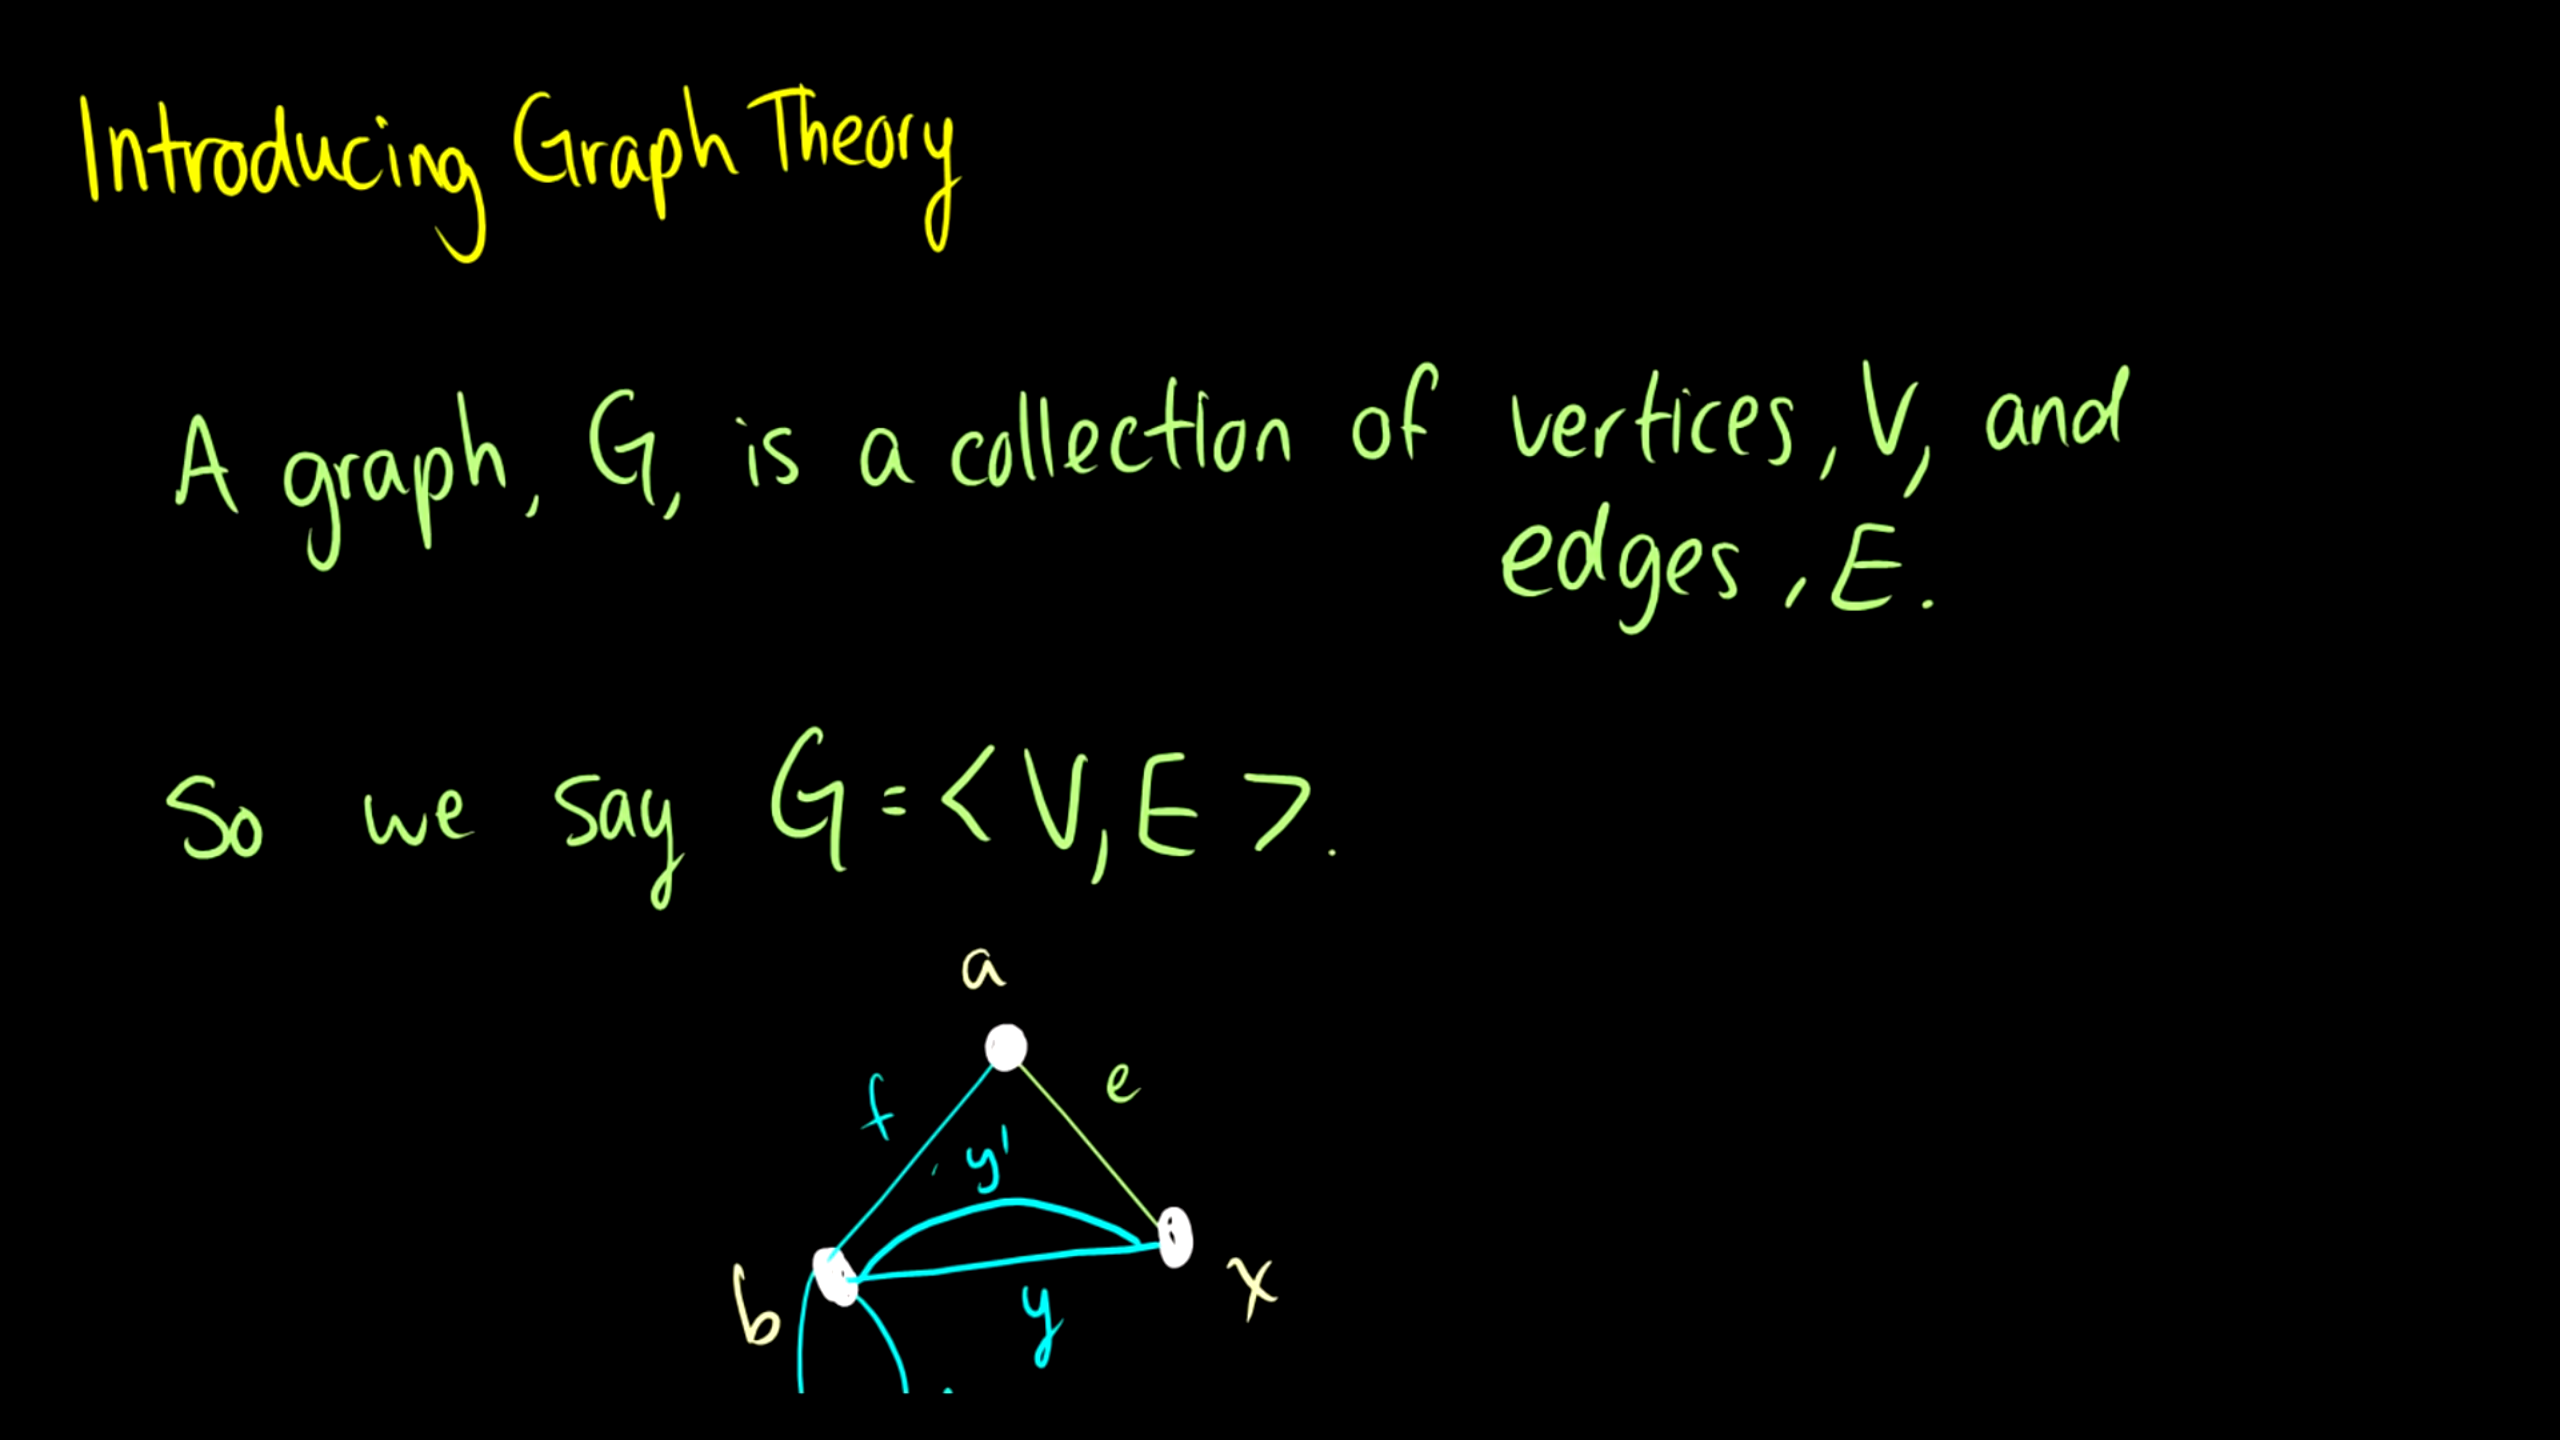 Introducing Graph Theory
A graph, G, is a collection of vertices, V, and
edges, E.
So we say G = < V, E >.
a
f
e
y'
b
y
x